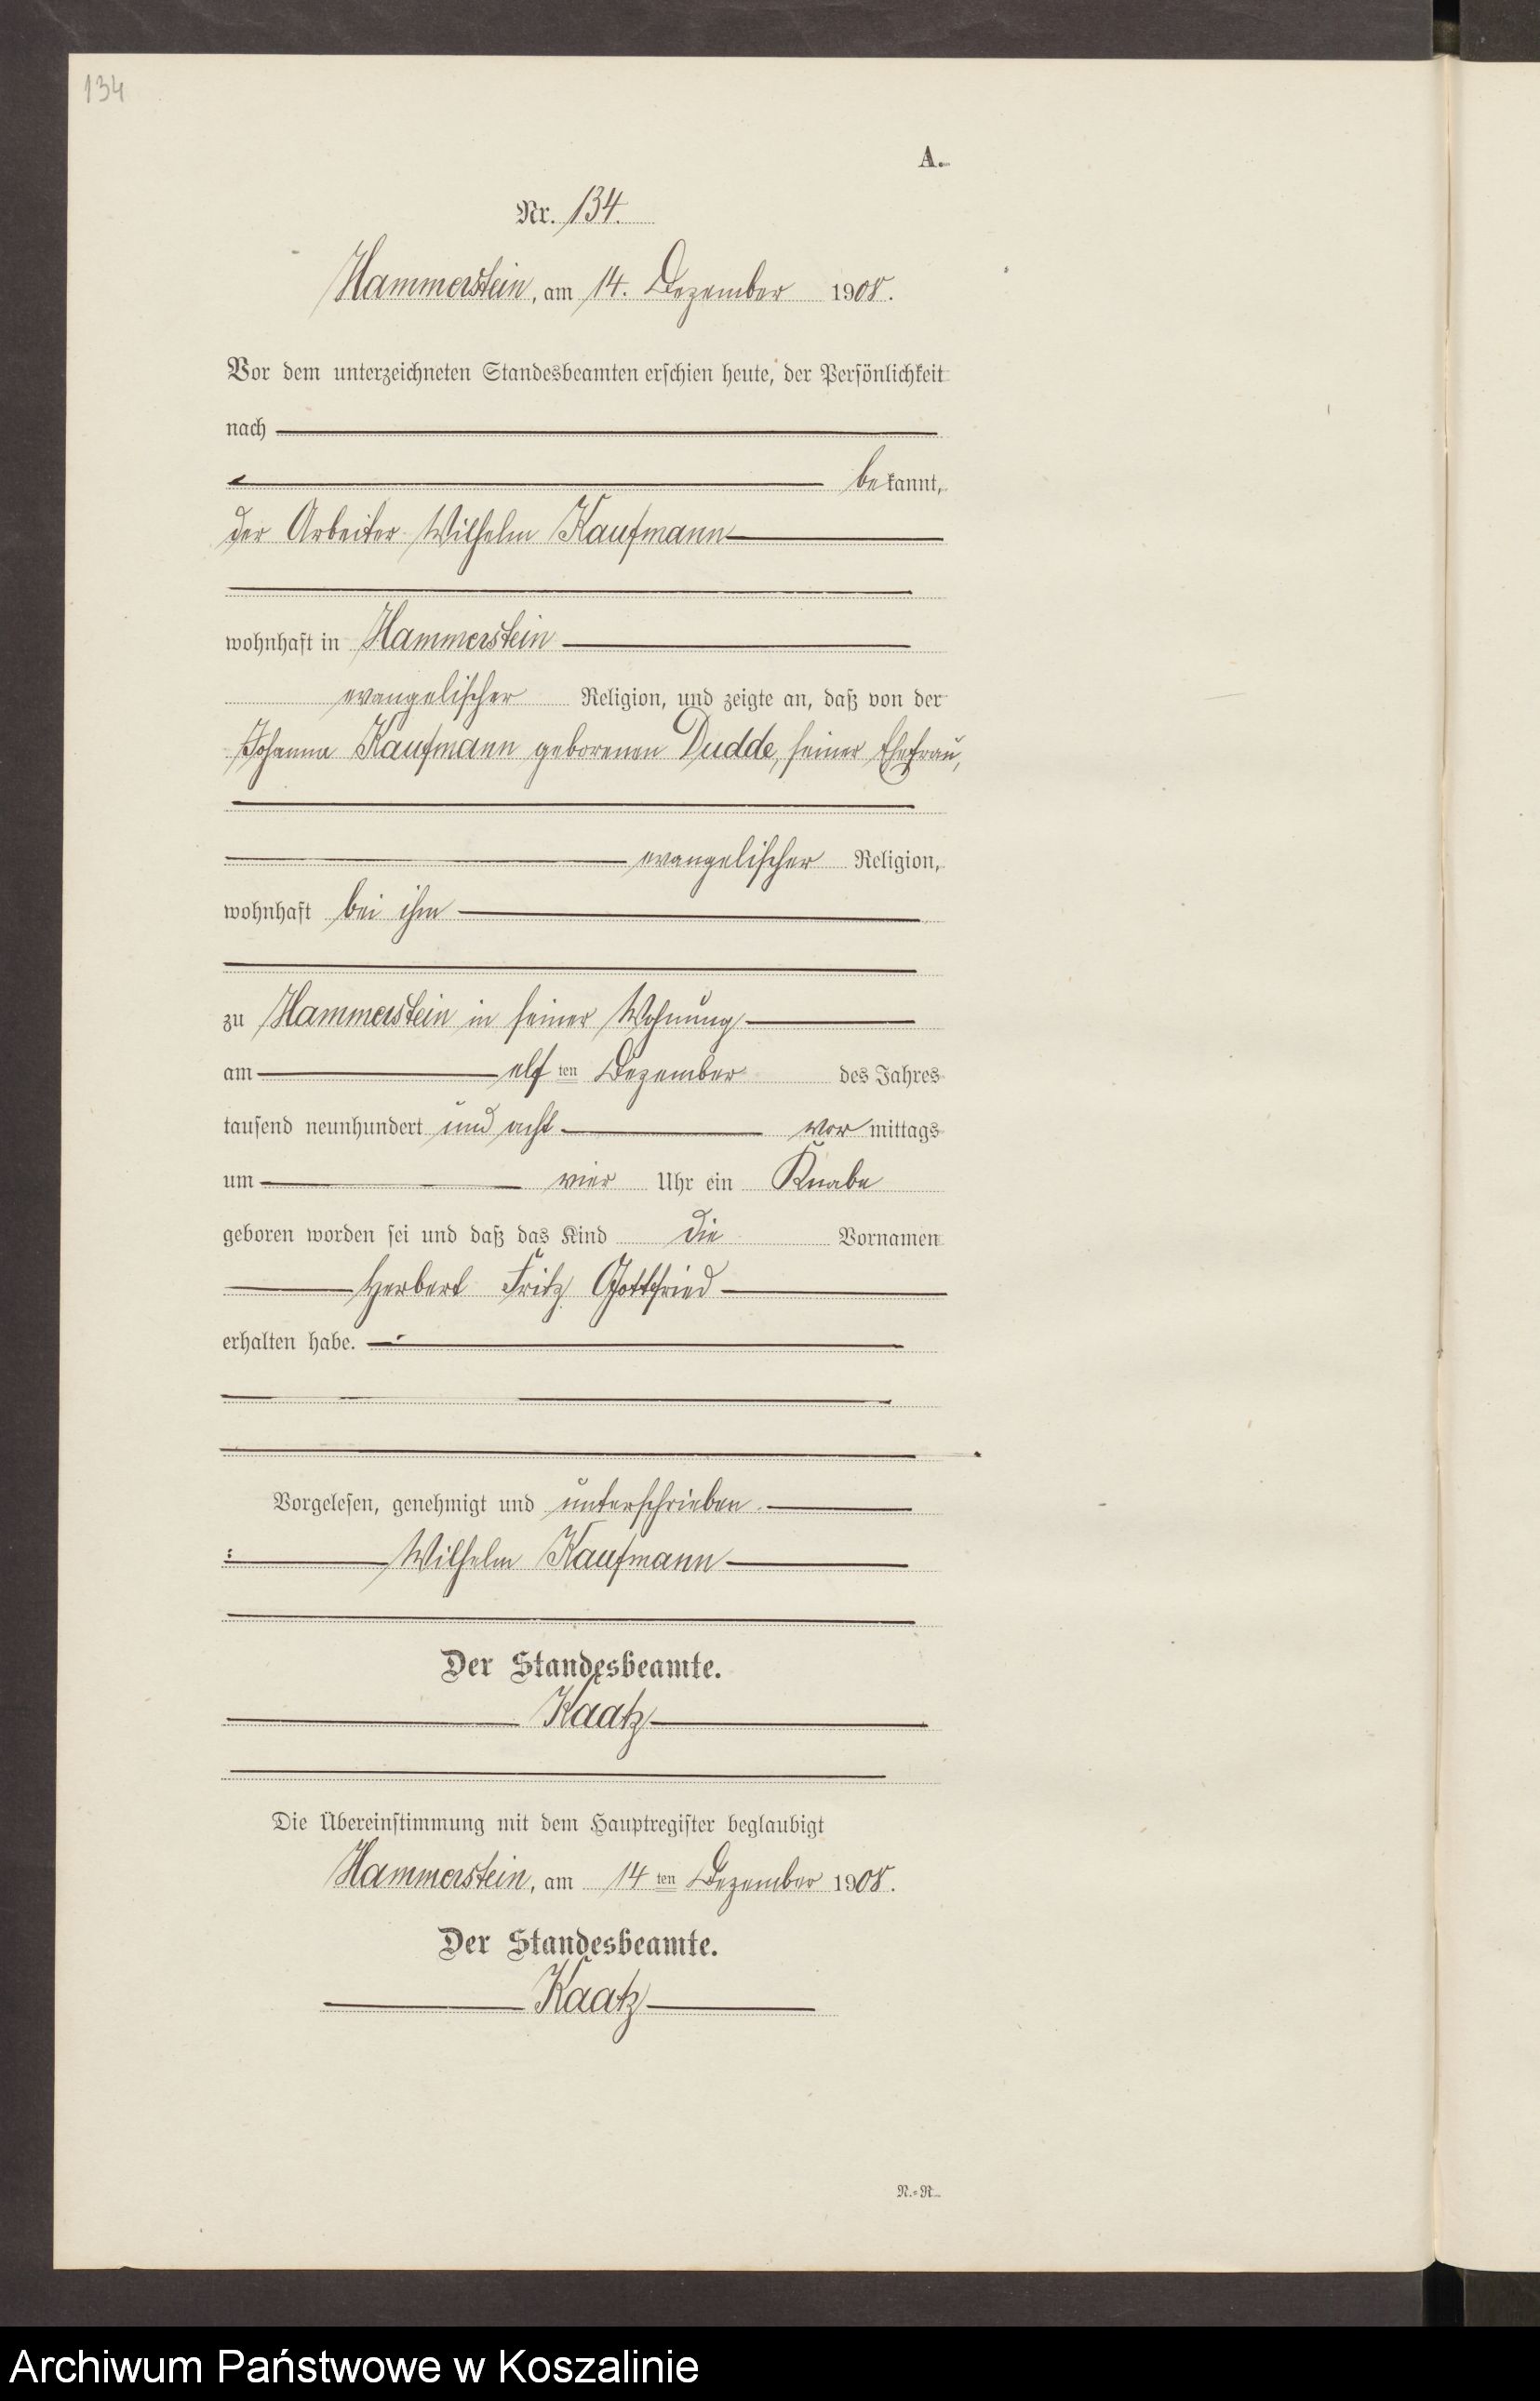 134
A.
Nr. 134.
Hammerstein, am 14. Dezember 1908.
Vor dem unterzeichneten Standesbeamten erschien heute, der Persönlichkeit
nach
bekannt,
der Arbeiter Wilhelm Kaufmann
wohnhaft in Hammerstein
evangelischer Religion, und zeigte an, daß von der
Johanna Kaufmann geborenen Dudde, seiner Ehefrau,
evangelischer Religion,
wohnhaft bei ihm
zu Hammerstein in seiner Wohnung
am elf ten Dezember des Jahres
tausend neunhundert und acht vor mittags
um vier Uhr ein Knabe
geboren worden sei und daß das Kind die Vornamen
Herbert Fritz Gottfried
erhalten habe.
Vorgelesen, genehmigt und unterschrieben.
Wilhelm Kaufmann
Der Standesbeamte.
Kaatz
Die Übereinstimmung mit dem Hauptregister beglaubigt
Hammerstein, am 14 ten Dezember 1908.
Der Standesbeamte.
Kaatz
N.=R.
Archiwum Państwowe w Koszalinie